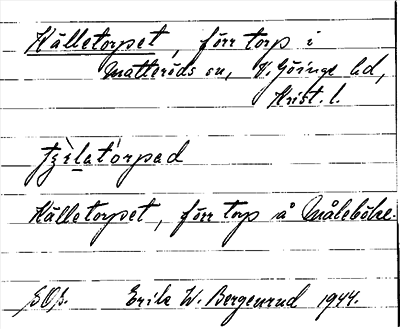 Källetorpet, förr torp i
Matteröds sn, V. Göinge hd,
Krist. l.
tjɛ̀latòrpəd
Källetorpet, förr torp å Målebölse.
SOß. Erik W. Bergenrud 1944.